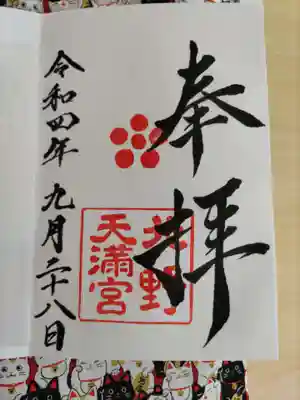 奉拝
野
天満宮
令和四年 九月二十八日